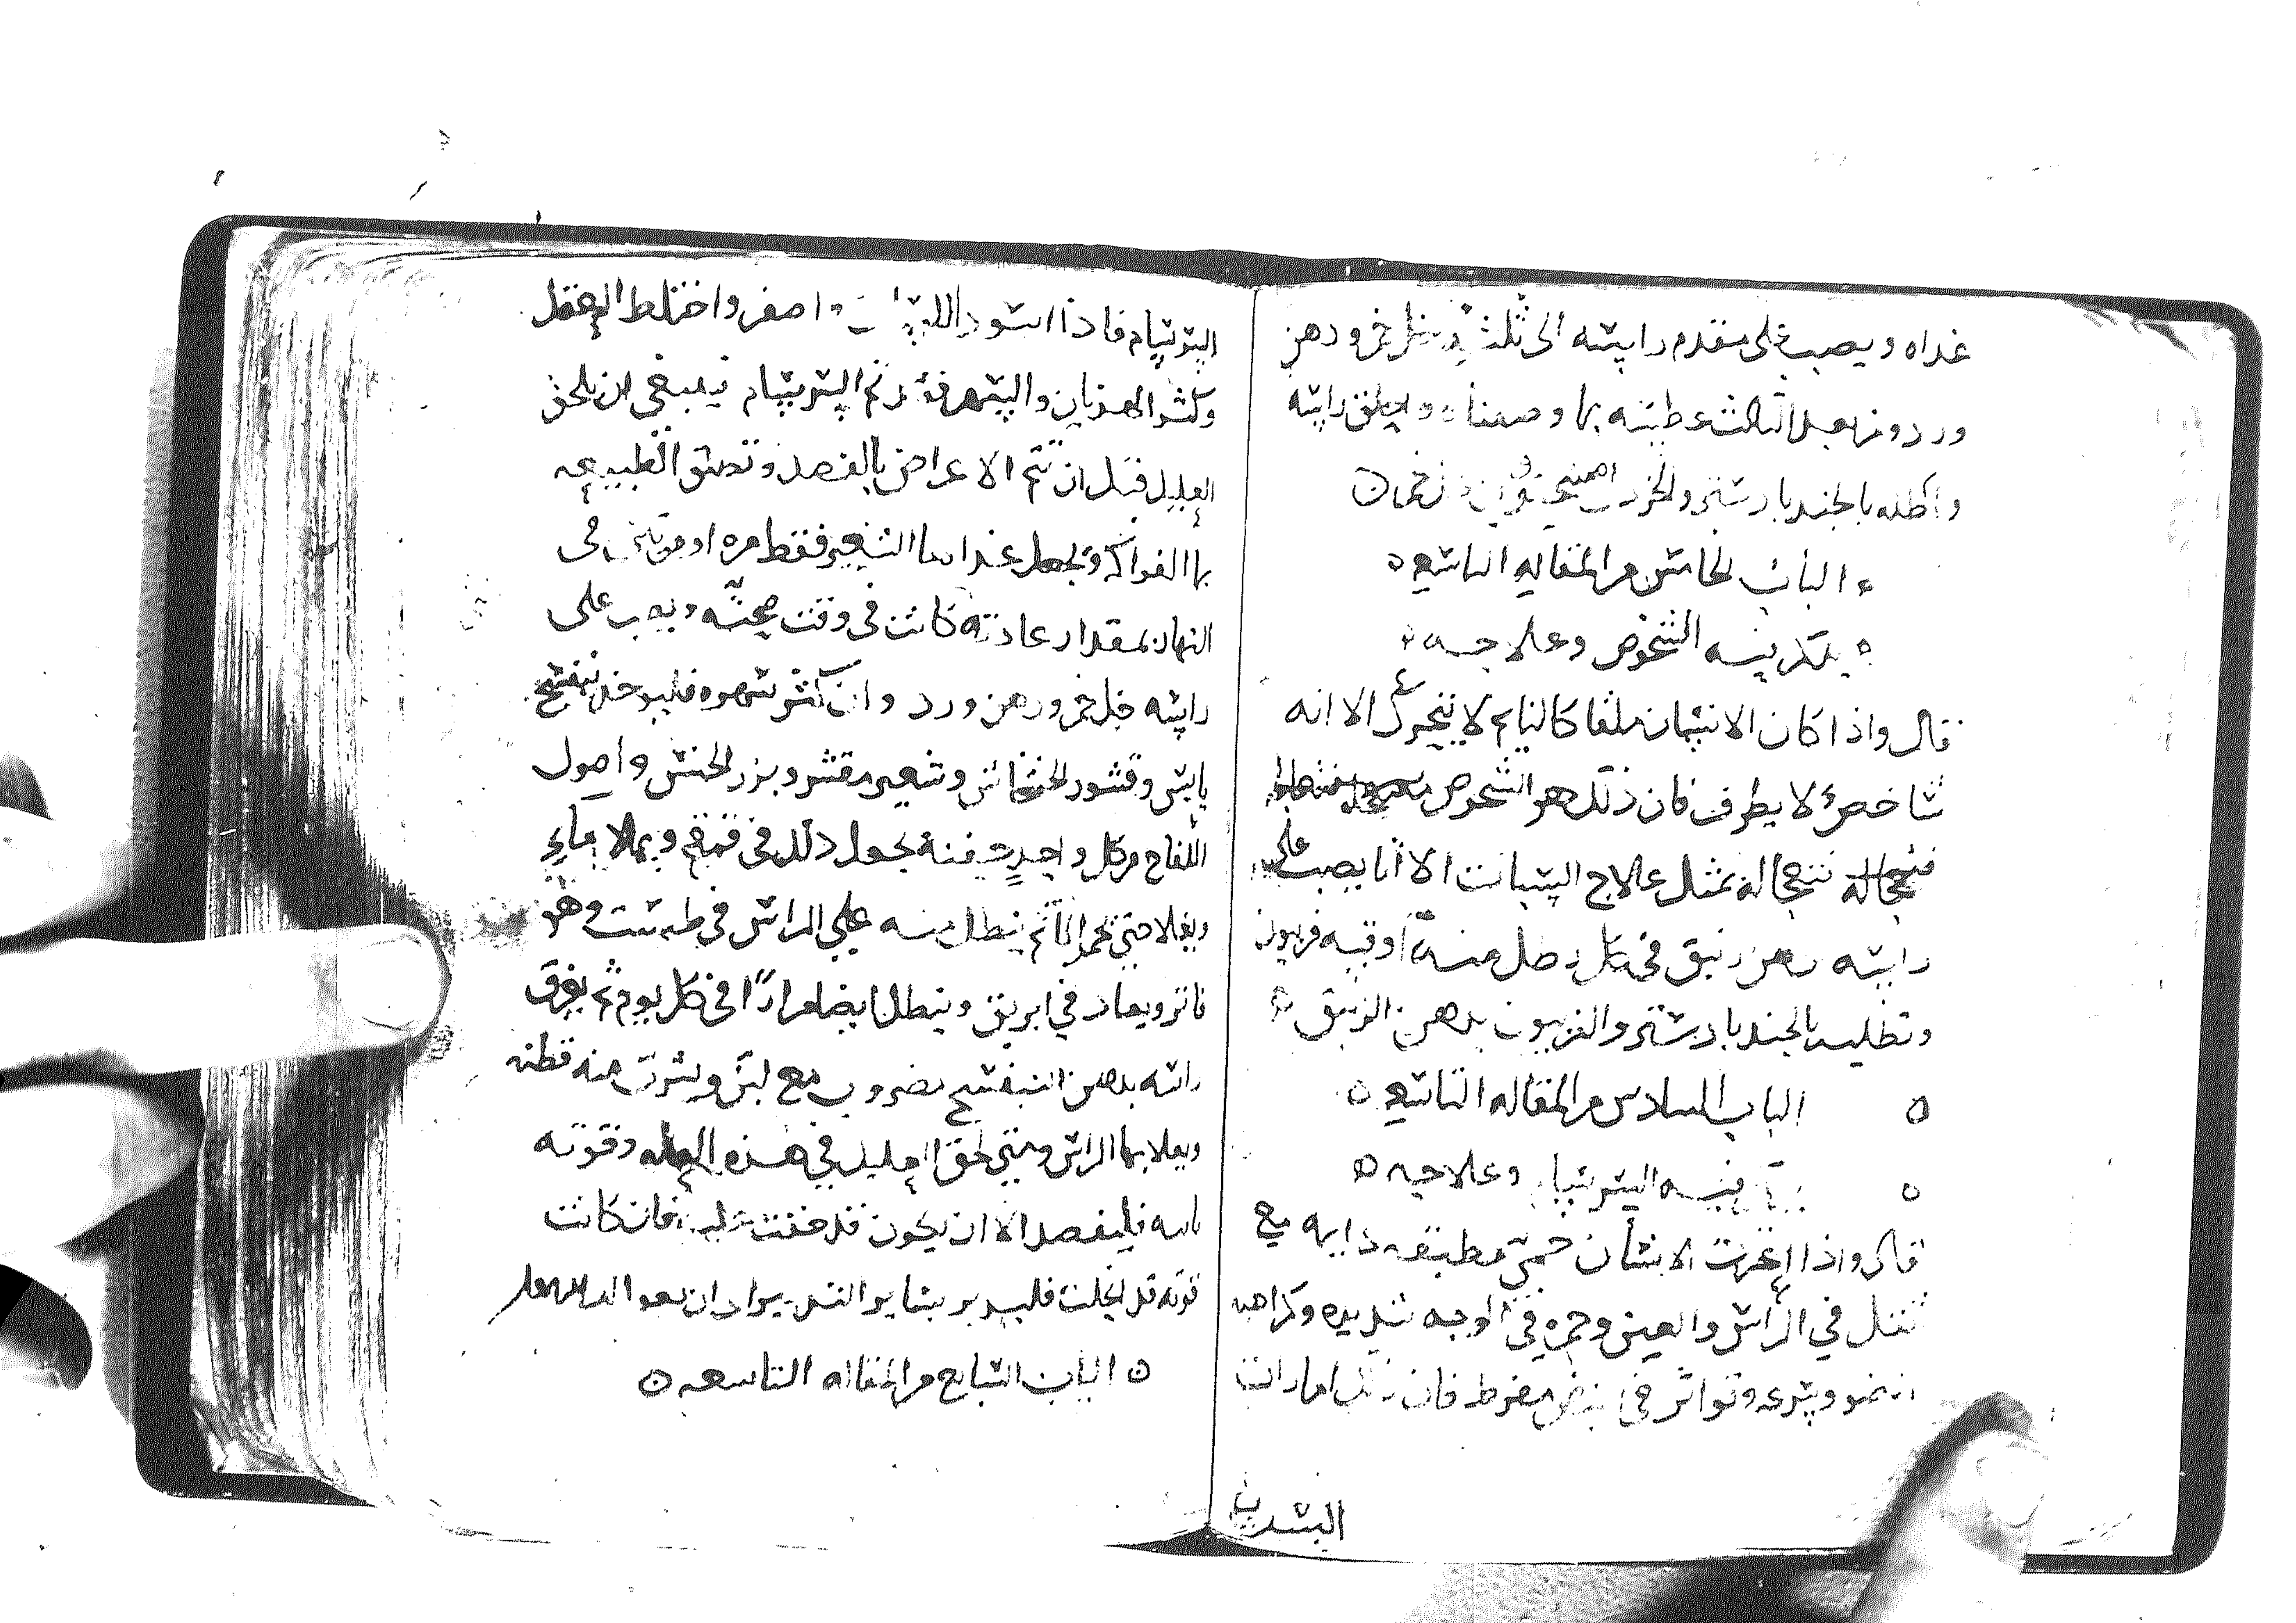 غداه ويصب على مقدم راسه الى ثلثه خل خمر ودهن
ورد ومن بعد الثالث عطسه بما وصفناه واحلق راسه
واطله بالجندبادستر والخردل
الباب الخامس من المقاله التاسعه
يذكر فيه الشخوص وعلاجه
قال واذا كان الانسان ملقا كالنايم لا يتحرك الا انه
شاخص لا يطرف فان ذلك هو الشخوص
فتعجاله بمثل علاج السبات الا انا يصب على
راسه دهن زنبق في كل رطل منه اوقيه فربيون
وتطليه بالجندبادستر والفربيون بدهن الزنبق
الباب السادس من المقاله التاسعه
فيه السرسام وعلاجه
قال واذا اعترت الانسان حمى مطبقه دايمه مع
ثقل في الراس والعين وحمره في الوجه شديده وكراهه
وسرعه وتواتر في نبض مفرط فان ذلك امارات
السرسام
السرسام فاذا اسود اللسان واصفر واختلط العقل
وكثر الهذيان والسهر فقد تم السرسام فينبغي ان يلحق
العليل قبل ان تتم الاعراض بالفصد وتسق الطبيعه
بما الفواكه وتجعل غذا ما الشعير فقط مره او مرتين في
النهار بمقدار عادته كانت في وقت صحته ويصب على
راسه خل خمر ودهن ورد وان كثر سهره فليوخذ بنفسج
يابس وقشور الخشخاش وشعير مقشر وبزر الخس واصول
اللفاح من كل واحد حفنه يجعل ذلك في قمقم ويملا ماء
ويغلا حتى يحمر الما ثم ينطل منه على الراس في طست وهو
فاتر ويعاد في ابريق وينطل ايضا مرارا في كل يوم ثم يغرق
راسه بدهن البنفسج مضروب مع لبن ويشرب منه قطنه
ويعلا بها الراس ومتى لحق العليل في هذه العله وقوته
فليفصد الا ان يكون قد خفت عليه فان كانت
قوته قد انحلت فليدبر بساير التدبير
الباب السابع من المقاله التاسعه